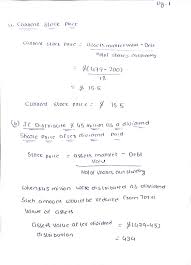 Pg-1
Current Stock Price
Current Stock Price = Assets market value - Debt
Total shares outstanding
= $(479-200)
18
= $ 15.5
Current Stock Price = $ 15.5
(b) If Distribute $ 45 million as a dividend
Share Price after dividend paid
Stock price = assets market - Debt
Value
Total shares outstanding
When $45 million were distributed as dividend
Such amount would be reduced from Total
Value of assets
Assets value after dividend = $(479-45)
distribution
= 434